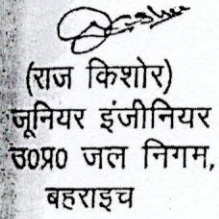 (राज किशोर)
जूनियर इंजीनियर
उ०प्र० जल निगम,
बहराइच